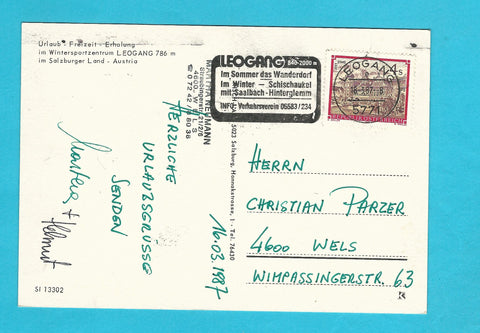 Urlaub · Freizeit · Erholung
im Wintersportzentrum LEOGANG 786 m
im Salzburger Land · Austria
LEOGANG 840-2000 m
Im Sommer das Wanderdorf
Im Winter – Schischaukel
mit Saalbach-Hinterglemm
INFO: Verkehrsverein 06583/234
LEOGANG
5771
REPUBLIK ÖSTERREICH
MARTHA NEUMANN
4600 WELS
HERZLICHE
URLAUBSGRÜSSE
SENDEN
Martha + Helmut
16.03.1987
5023 Salzburg, Hannakstrasse, Tel. 76430
HERRN
CHRISTIAN PARZER
4600 WELS
WIMPASSINGERSTR. 63
SI 13302